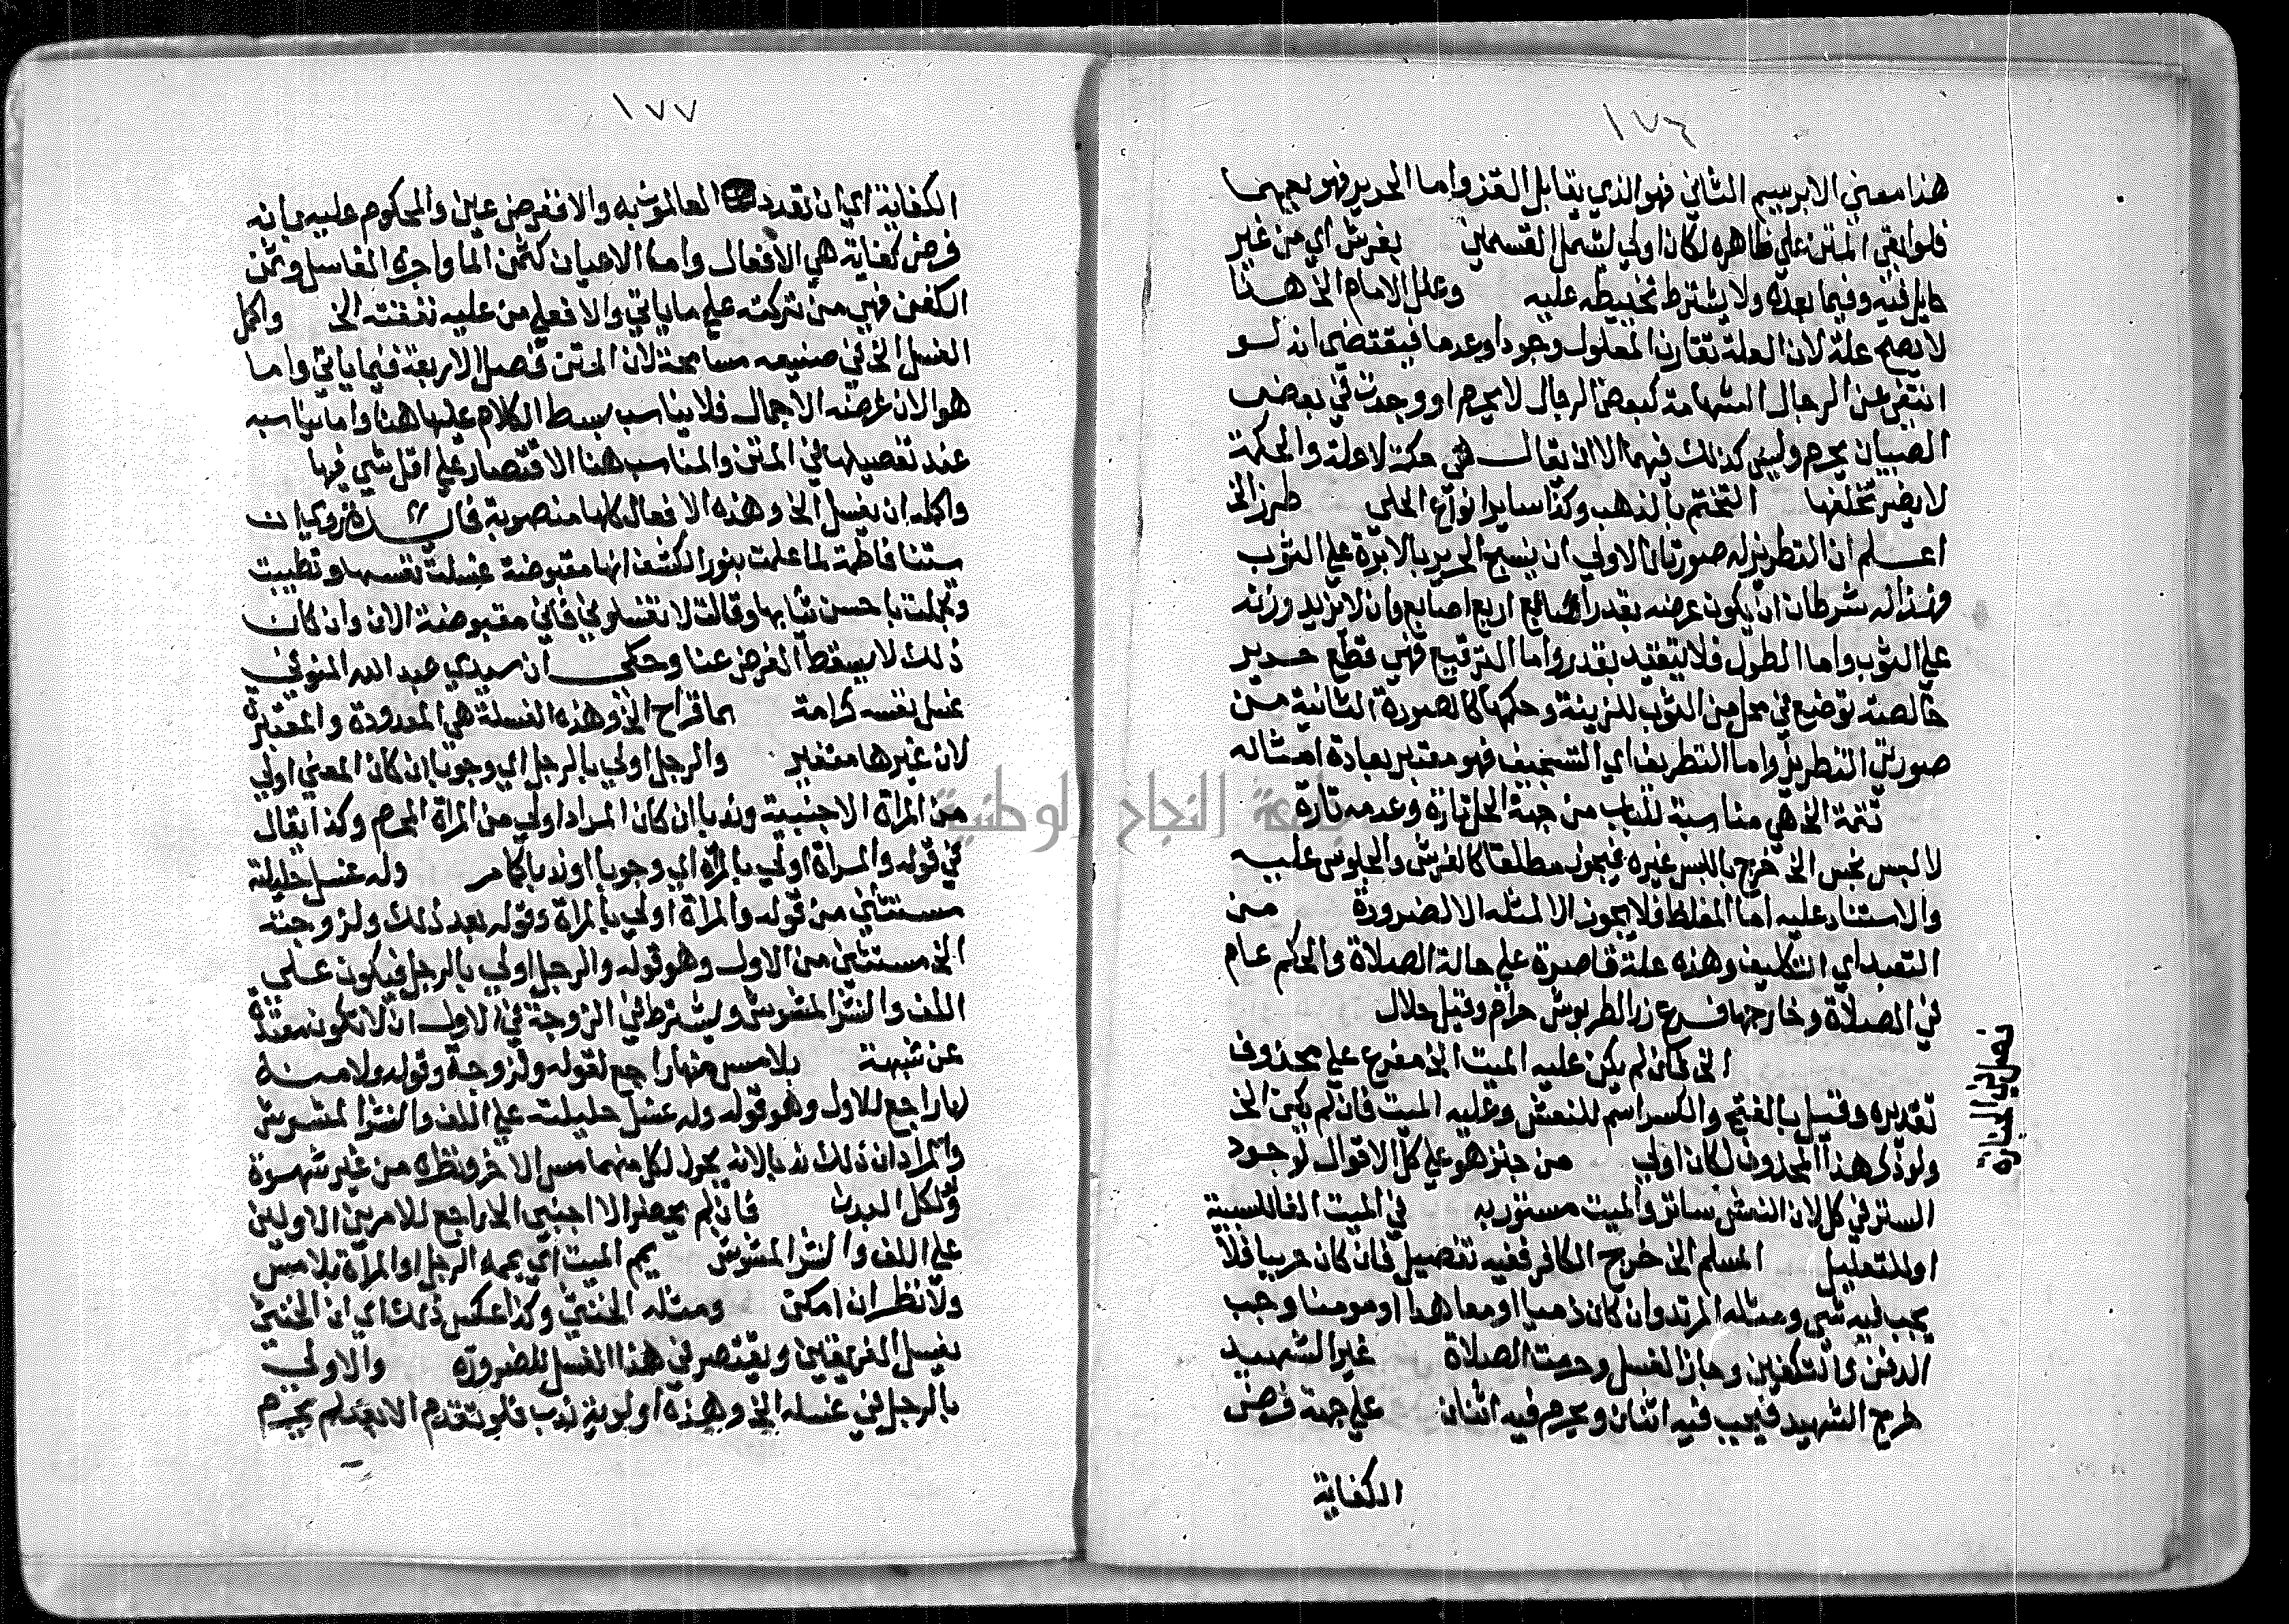 ١٧٦
هذا معني الابريسيم الثاني فهو الذي يقابل القز واما الحرير فهو يعمهما
فلو ابقي المتن علي ظاهره لكان اولي لشمل القسمين بفرش اي من غير
حايل فيه وفيما بعده ولا يشترط تخييطه عليه وعلل الامام الخ هذا
لا يصح علة لان العلة تقارن المعلول وجودا وعدما فيقتضي انه لو
انتفي عن الرجال الشهامة كبعض الرجال لا يحرم او وجدت في بعض
الصبيان يحرم وليس كذلك فيهما الا ان يقال هي حكمة لا علة والحكمة
لا يضر تخلفها التختم بالذهب وكذا ساير انواع الحلي طرز الخ
اعلم ان التطريز له صورتان الاولي ان ينسج الحرير بالابرة علي الثوب
وهذا له شرطان ان يكون عرضه بقدر اربع اصابع وان لا يزيد وزنه
علي الثوب واما الطول فلا يتقيد بقدر واما الترقيع فهي قطع حرير
خالصة توضع في محل من الثوب للزينة وحكمها كالصورة الثانية من
صورتي التطريز واما التطريف اي التسجيف فهو معتبر بعادة امثاله
تتمة الخ هي مناسبة للباب من جهة الحل تارة وعدمه تارة
لا لبس نجس الخ خرج بالبس غيره فيجوز مطلقا كالفرش والجلوس عليه
والاستناد عليه اما المغلظ فلا يجوز الا لمثله الا لضرورة من
التعبد اي التكليف وهذه علة قاصرة علي حالة الصلاة والحكم عام
في الصلاة وخارجها فرع زر الطربوش حرام وقيل حلال
الخ فان لم يكن عليه الميت الخ مفرع علي محذوف
تقديره وقيل بالفتح والكسر اسم للنعش وعليه الميت فان لم يكن الخ
ولو ذكر هذا المحذوف لكان اولي من جنز هو علي كل الاقوال لوجود
الستر في كل لان النعش ساتر والميت مستور به في الميت الفا للسببية
او للتعليل المسلم الخ خرج الكافر ففيه تفصيل فان كان حربيا فلا
يجب فيه شي ومثله المرتد وان كان ذميا او معاهدا او مومنا وجب
الدفن والتكفين وجاز الغسل وحرمت الصلاة غير الشهيد
خرج الشهيد فيجب فيه اثنان ويحرم فيه اثنان علي جهة فرض
الكفاية
فصل في الجنازة
١٧٧
الكفاية اي ان تعدد العالمون به والا ففرض عين والمحكوم عليه بانه
فرض كفاية هي الافعال واما الاعيان كثمن الما واجرة الغاسل وثمن
الكفن فهي من تركته علي ما ياتي والا فعلي من عليه نفقته الخ واكمل
الغسل الخ في صنيعه مسامحة لان المتن فصل الاربعة فيما ياتي واما
هو الان غرضه الاجمال فلا يناسب بسط الكلام عليها هنا وانما يناسبه
عند تفصيلها في المتن والمناسب هنا الاقتصار علي اقل شي فيها
واكمله ان يغسل الخ وهذه الافعال كلها منصوبة فائدة روي ان
ستنا فاطمة لما علمت بنور الكشف انها مقبوضة غسلت نفسها وتطيبت
وتجملت باحسن ثيابها وقالت لا تغسلوني فاني مقبوضة الان وان كان
ذلك لا يسقط الفرض عنا وحكي ان سيدي عبد الله المنوفي
غسل نفسه كرامة بما قراح الخ وهذه الغسلة هي المعدودة والمعتبرة
لان غيرها متغير والرجل اولي بالرجل اي وجوبا ان كان المعني اولي
من المراة الاجنبية وندبا ان كان المراد اولي من المراة المحرم وكذا يقال
في قوله والمراة اولي بالمراة اي وجوبا او ندبا كما مر وله غسل حليلته
مستثني من قوله والمراة اولي بالمراة وقوله بعد ذلك ولزوجته
الخ مستثني من الاول وهو قوله والرجل اولي بالرجل فيكون علي
اللف والنشر المشوش ويشترط في الزوجة في الاول ان لا تكون معتدة
عن شبهة بلا مس منها راجع لقوله ولزوجة وقوله ولا منه
لها راجع للاول وهو قوله وله غسل حليلته علي اللف والنشر المشوش
والمراد ان ذلك ندبا لانه يجوز لكل منهما مس الاخر ونظره من غير شهوة
ولكل البدن فان لم يحضر الا اجنبي الخ راجع للامرين الاولين
علي اللف والنشر المشوش يمم الميت اي يممه الرجل او المراة بلا مس
ولا نظر ان امكن ومثله الخنثي وكذا عكس ذلك اي ان الخنثي
يغسل الفريقين ويقتصر في هذا الغسل للضرورة والاولي
بالرجل في غسله الخ وهذه اولوية ندب فلو تقدم الابعد لم يحرم
جامعة النجاح الوطنية